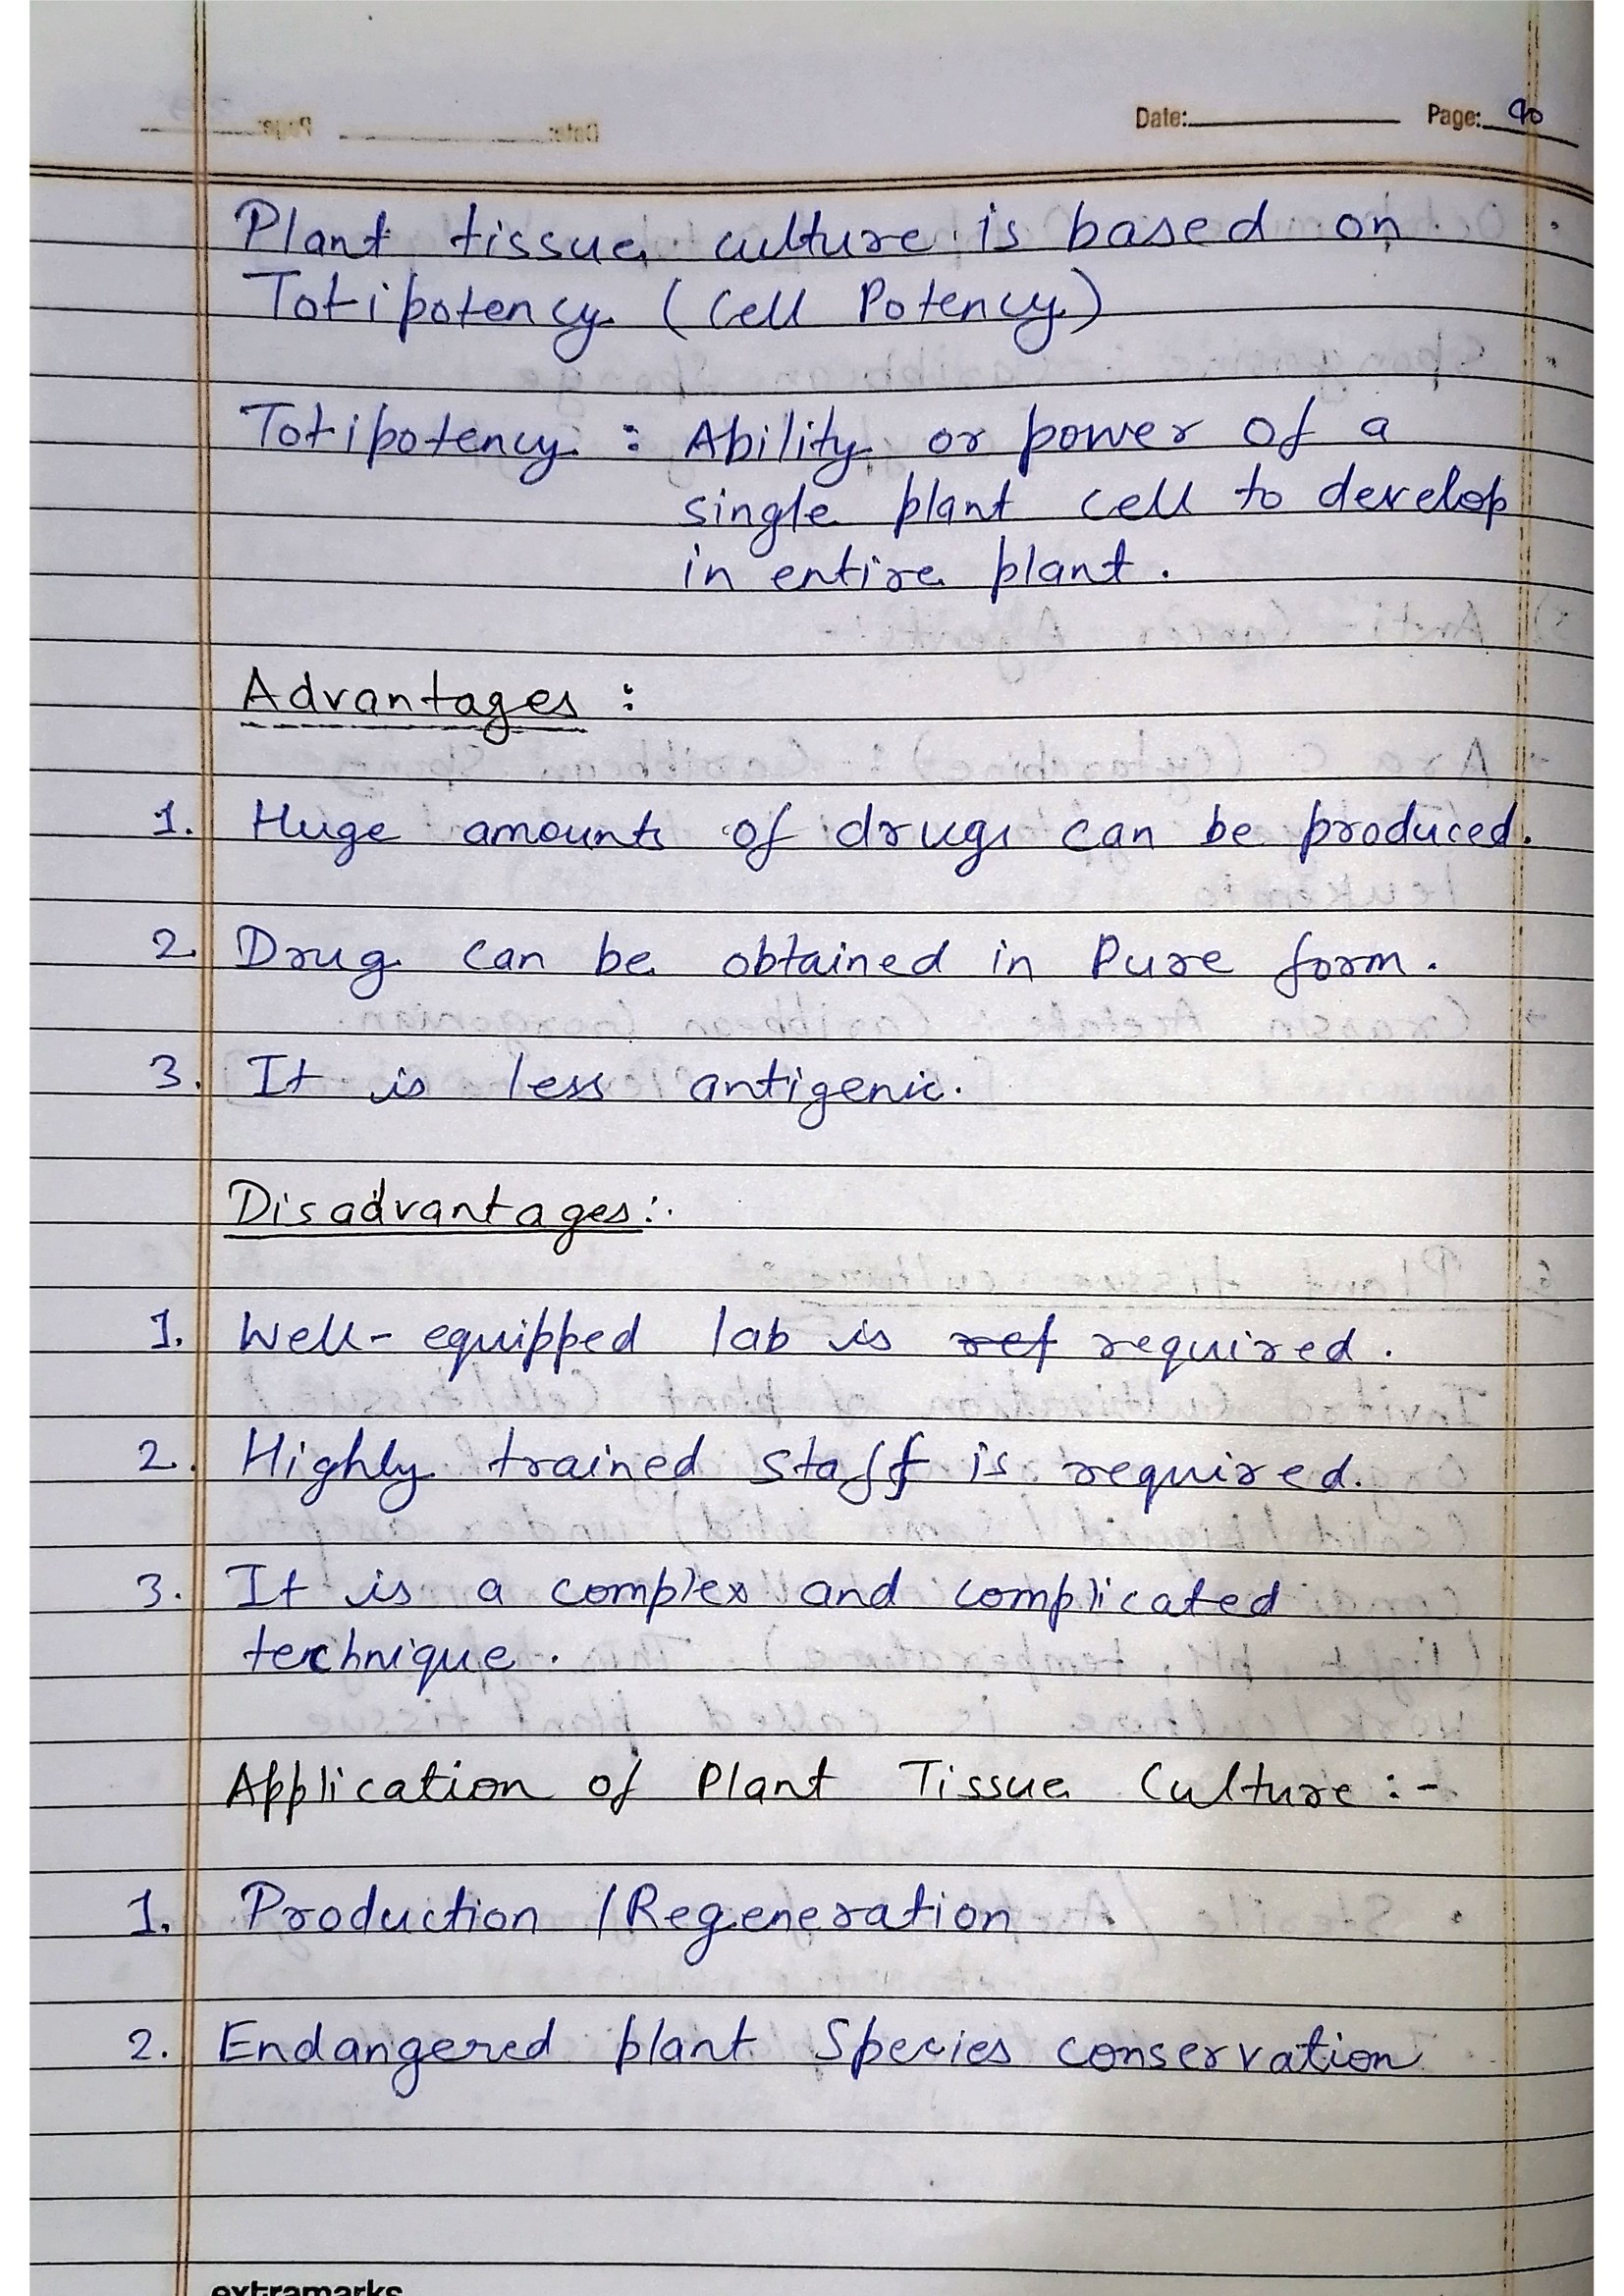 Date: Page: 90
Plant tissue culture is based on
Totipotency (Cell Potency)
Totipotency : Ability or power of a
single plant cell to develop
in entire plant.
Advantages :
1. Huge amounts of drugs can be produced.
2. Drug can be obtained in Pure form.
3. It is less antigenic.
Disadvantages:
1. Well-equipped lab is ref required.
2. Highly trained staff is required.
3. It is a complex and complicated
technique.
Application of Plant Tissue Culture :-
1. Production / Regeneration
2. Endangered plant Species conservation
extramarks